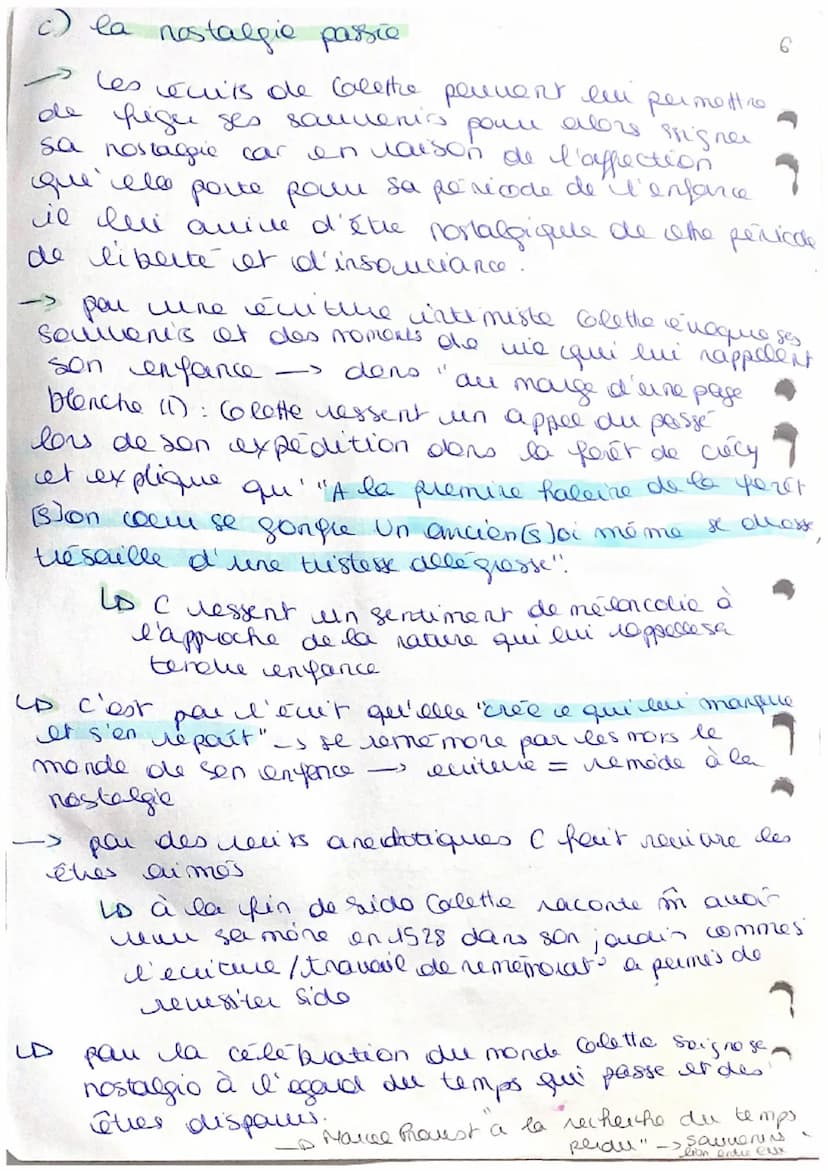 c) la nostalgie passée
6
→ Les écrits de Colette peuvent lui permettre
de figer ses souvenirs pour alors soigner
sa nostalgie car en raison de l'affection
qu'elle porte pour sa période de l'enfance
il lui arrive d'être nostalgique de cette période
de liberté et d'insouciance.
→ par une écriture intimiste Colette évoque ses
souvenirs et des moments de vie qui lui rappellent
son enfance → dans "au marge d'une page
blanche (1) : Colette ressent un appel du passé
lors de son expédition dans la forêt de Crécy
et explique qu' "A la premire haleine de la forêt
[s]on coeur se gonfle Un ancien [s]oi même se dresse,
trésaille d'une tristesse allégresse".
↳ C ressent un sentiment de mélancolie à
l'approche de la nature qui lui rappelle sa
tendre enfance
↳ C'est par l'écrit qu'elle "crée ce qui lui manque
et s'en repaît" → se remémore par les mots le
monde de son enfance → écriture = remède à la
nostalgie
→ par des récits anecdotiques C fait revivre les
êtres aimés
↳ à la fin de Sido Colette raconte m̂ avoir
revu sa mère en 1928 dans son jardin commes
l'écriture / travail de remémorat° a permis de
ressusiter Sido
↳ par la célébration du monde Colette soigne sa
nostalgie à l'égard du temps qui passe et des
êtres disparus.
→ Marcel Proust "à la recherche du temps
perdu" → souvenirs
lien entre eux